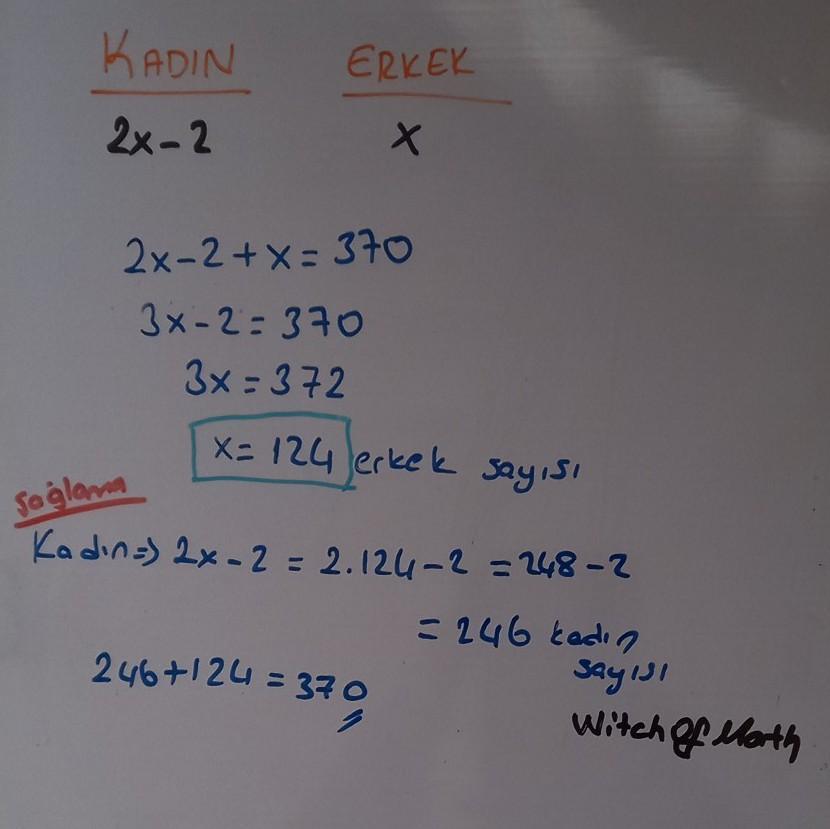 KADIN ERKEK
2x-2 x
2x-2+x=370
3x-2=370
3x=372
x=124 erkek sayısı
sağlama
Kadın⇒ 2x-2 = 2.124-2 = 248-2
= 246 kadın
sayısı
246+124=370
Witch Of North